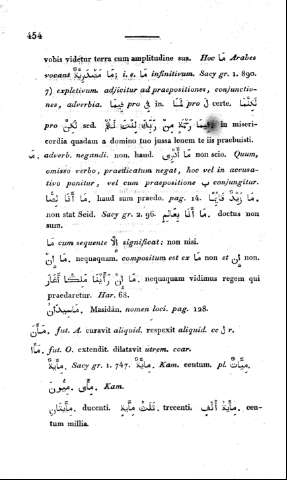 454
vobis videtur terra cum amplitudine sua. Hoc مَا Arabes
vocant مَا مَصْدَرِيَّة; i. e. مَا infinitivum. Sacy gr. 1. 890.
7) expletivum. adjicitur ad praepositiones, conjunctio-
nes, adverbia. فِيمَا pro فِى in. لَمَّا pro لَ certe. لٰكِنَّمَا
pro لٰكِنْ sed. مِنْ رَبِّكَ لِنْتَ لَهُمْ in miseri-
cordia quadam a domino tuo jussa lenem te iis praebuisti.
مَا. adverb. negandi. non. haud. مَا أَدْرِى non scio. Quum,
omisso verbo, praedicatum negat, hoc vel in accusa-
tivo ponitur, vel cum praepositione ب conjungitur.
مَا أَنَا لِصًّا. haud sum praedo. pag. 14. مَا زَيْدٌ قَائِمًا.
non stat Seid. Sacy gr. 2. 96. مَا أَنَا بِعَالِمٍ. doctus non
sum.
مَا cum sequente إِلَّا significat: non nisi.
مَا إِنْ. nequaquam. compositum est ex مَا non et إِنْ non.
مَا إِنْ رَأَيْنَا مَلِكًا أَغَارَ. nequaquam vidimus regem qui
praedaretur. Har. 68.
مَاسِبَذَان. Masidán. nomen loci. pag. 128.
مَأَنَ. fut. A. curavit aliquid. respexit aliquid. cc ل r.
مَأَا. fut. O. extendit. dilatavit utrem. coar.
مِأَيَةٌ. Sacy gr. 1. 747. مِايَةٌ. Kam. centum. pl. مِئَاتٌ.
مِأًى. مِئُونَ. Kam.
مِأَيَتَانِ. ducenti. ثَلٰثُ مِأَيَةٍ. trecenti. مِأَيَةُ أَلْفٍ. cen-
tum millia.